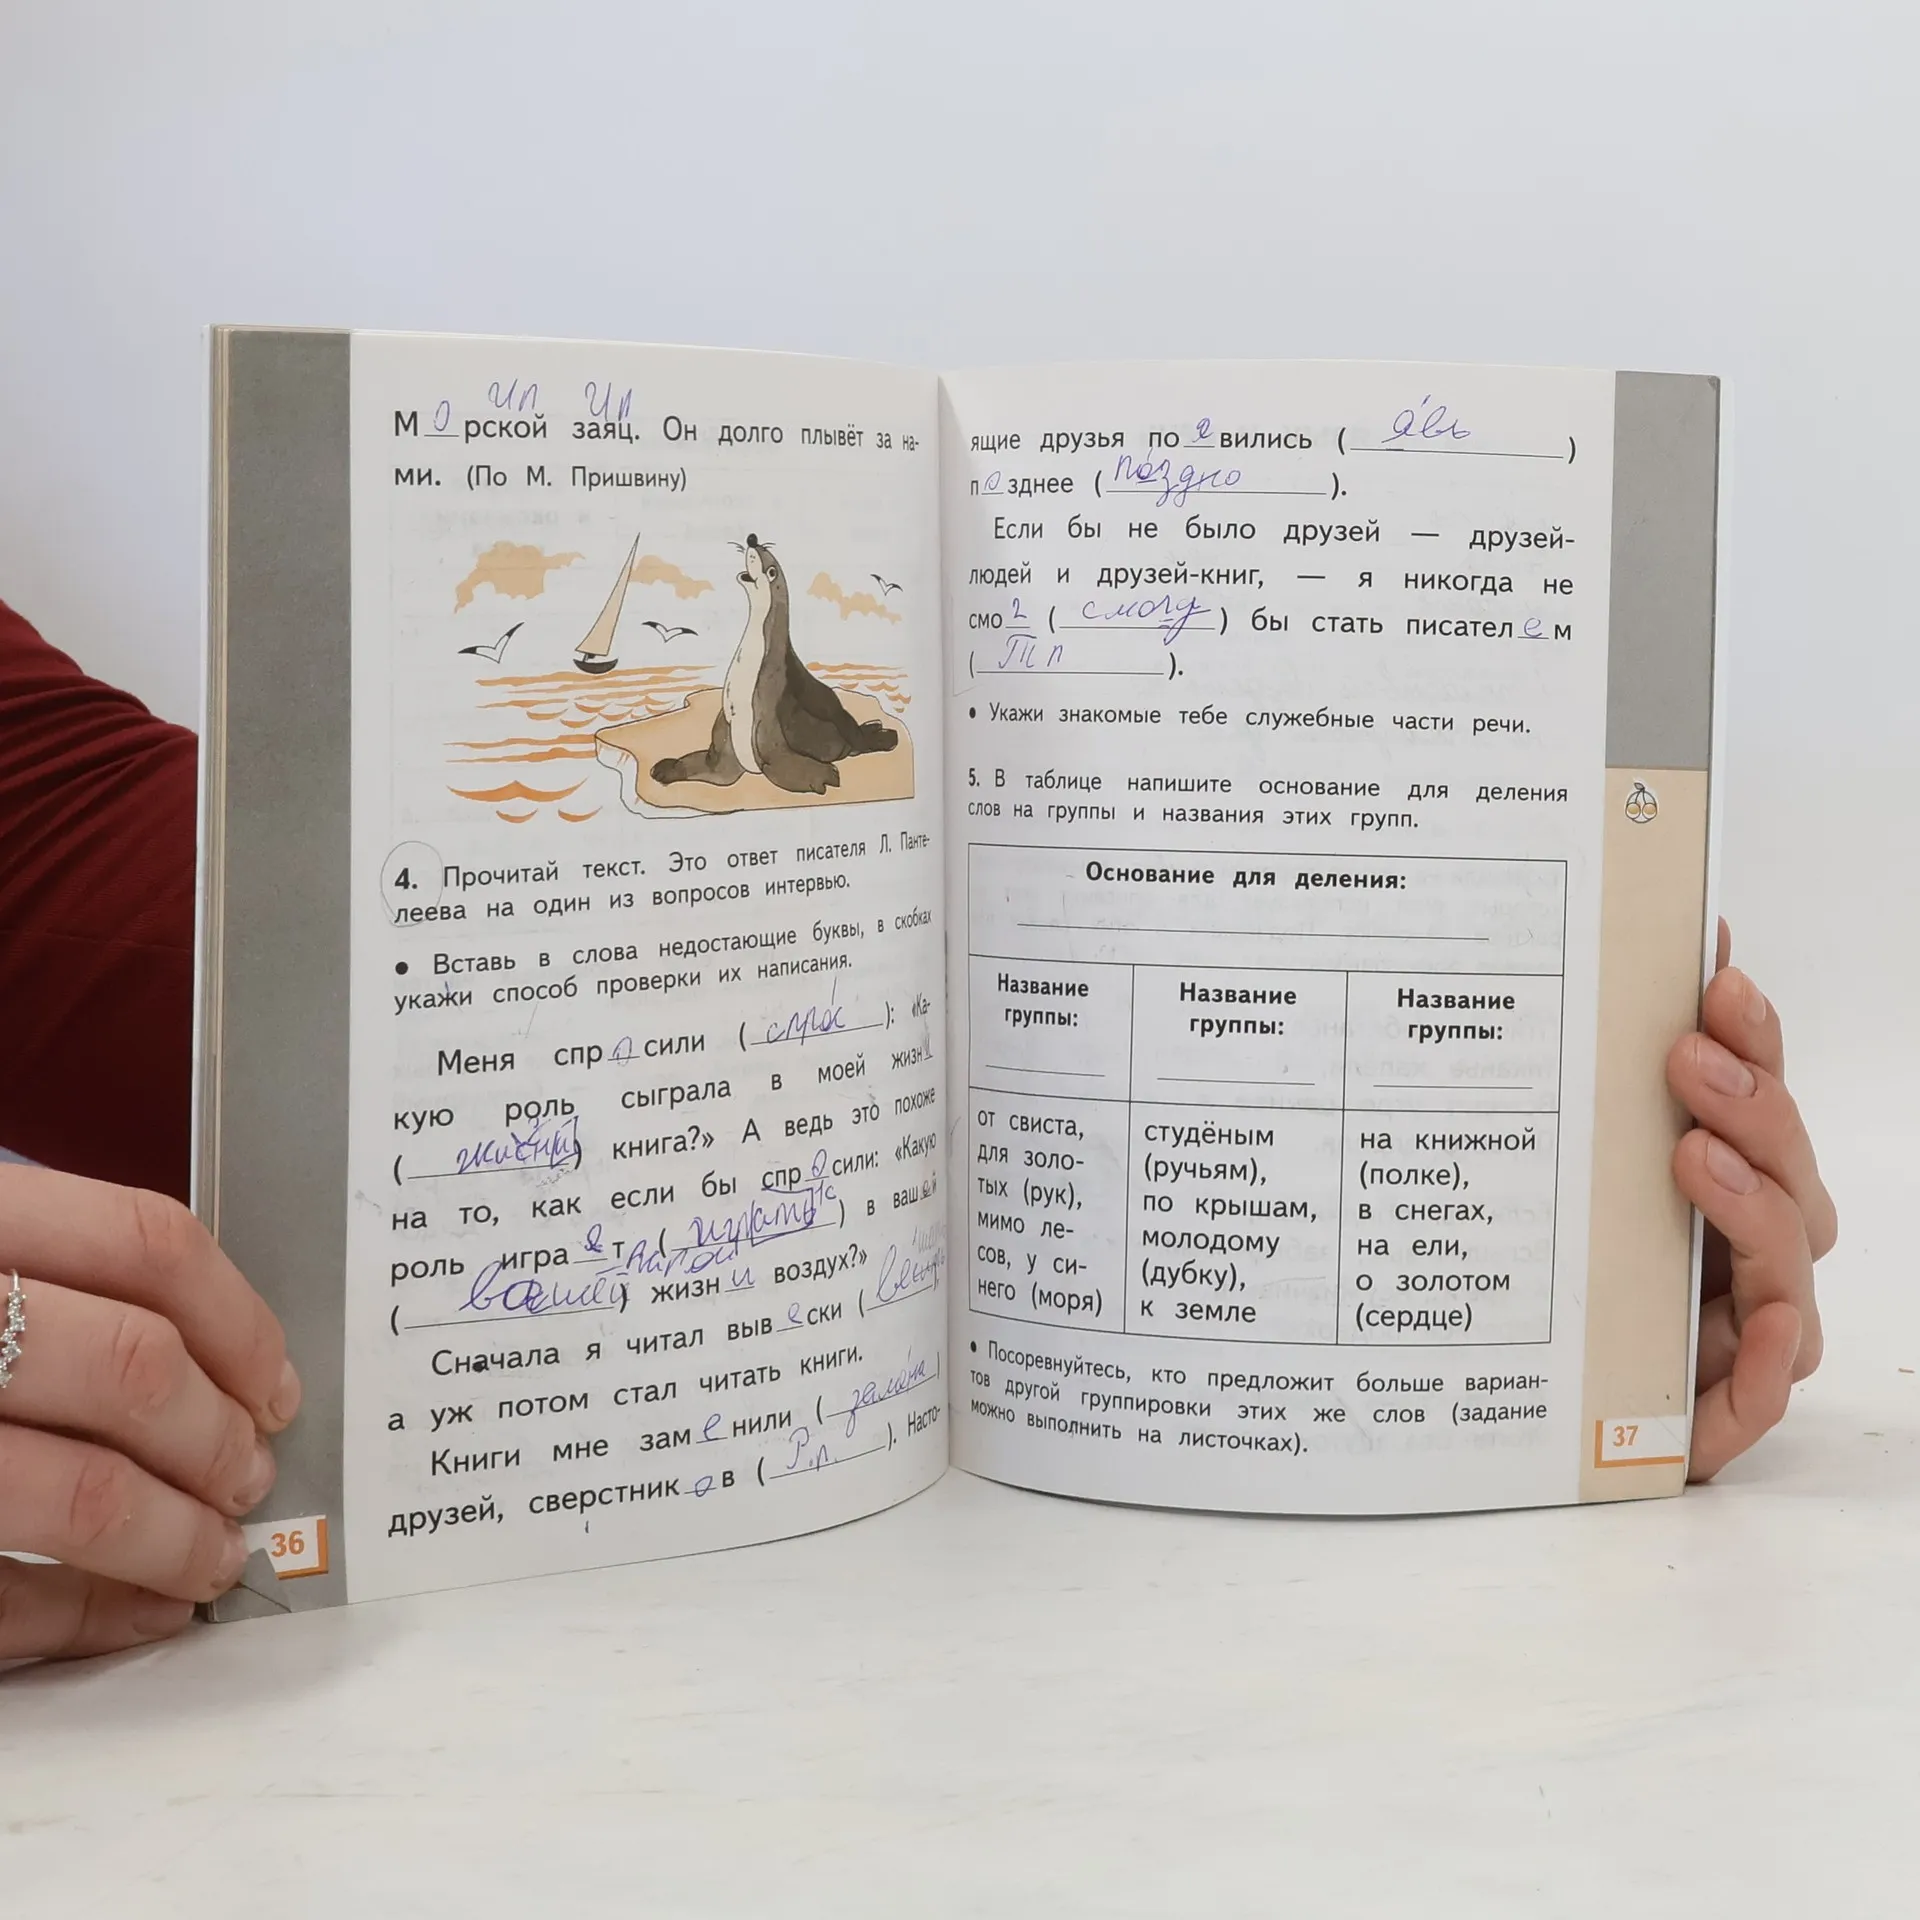 ип ип
М о рской заяц. Он долго плывёт за на-
ми. (По М. Пришвину)
4. Прочитай текст. Это ответ писателя Л. Панте-
леева на один из вопросов интервью.
• Вставь в слова недостающие буквы, в скобках
укажи способ проверки их написания.
Меня спр о сили ( спрос ): «Ка-
кую роль сыграла в моей жизн и
( ) книга?» А ведь это похоже
на то, как если бы спр о сили: «Какую
роль игра е т ( играть ) в ваш е й
( вашей ) жизн и воздух?»
Сначала я читал выв е ски ( ),
а уж потом стал читать книги.
Книги мне зам е нили ( замена )
друзей, сверстник о в ( Р.п. ). Насто-
36
ящие друзья по я вились ( явь )
п о зднее ( поздно ).
Если бы не было друзей — друзей-
людей и друзей-книг, — я никогда не
смо г ( смогу ) бы стать писател е м
( Тп ).
• Укажи знакомые тебе служебные части речи.
5. В таблице напишите основание для деления
слов на группы и названия этих групп.
Основание для деления:
Название группы:
от свиста,
для золо-
тых (рук),
мимо ле-
сов, у си-
него (моря)
Название группы:
студёным
(ручьям),
по крышам,
молодому
(дубку),
к земле
Название группы:
на книжной
(полке),
в снегах,
на ели,
о золотом
(сердце)
• Посоревнуйтесь, кто предложит больше вариан-
тов другой группировки этих же слов (задание
можно выполнить на листочках).
37